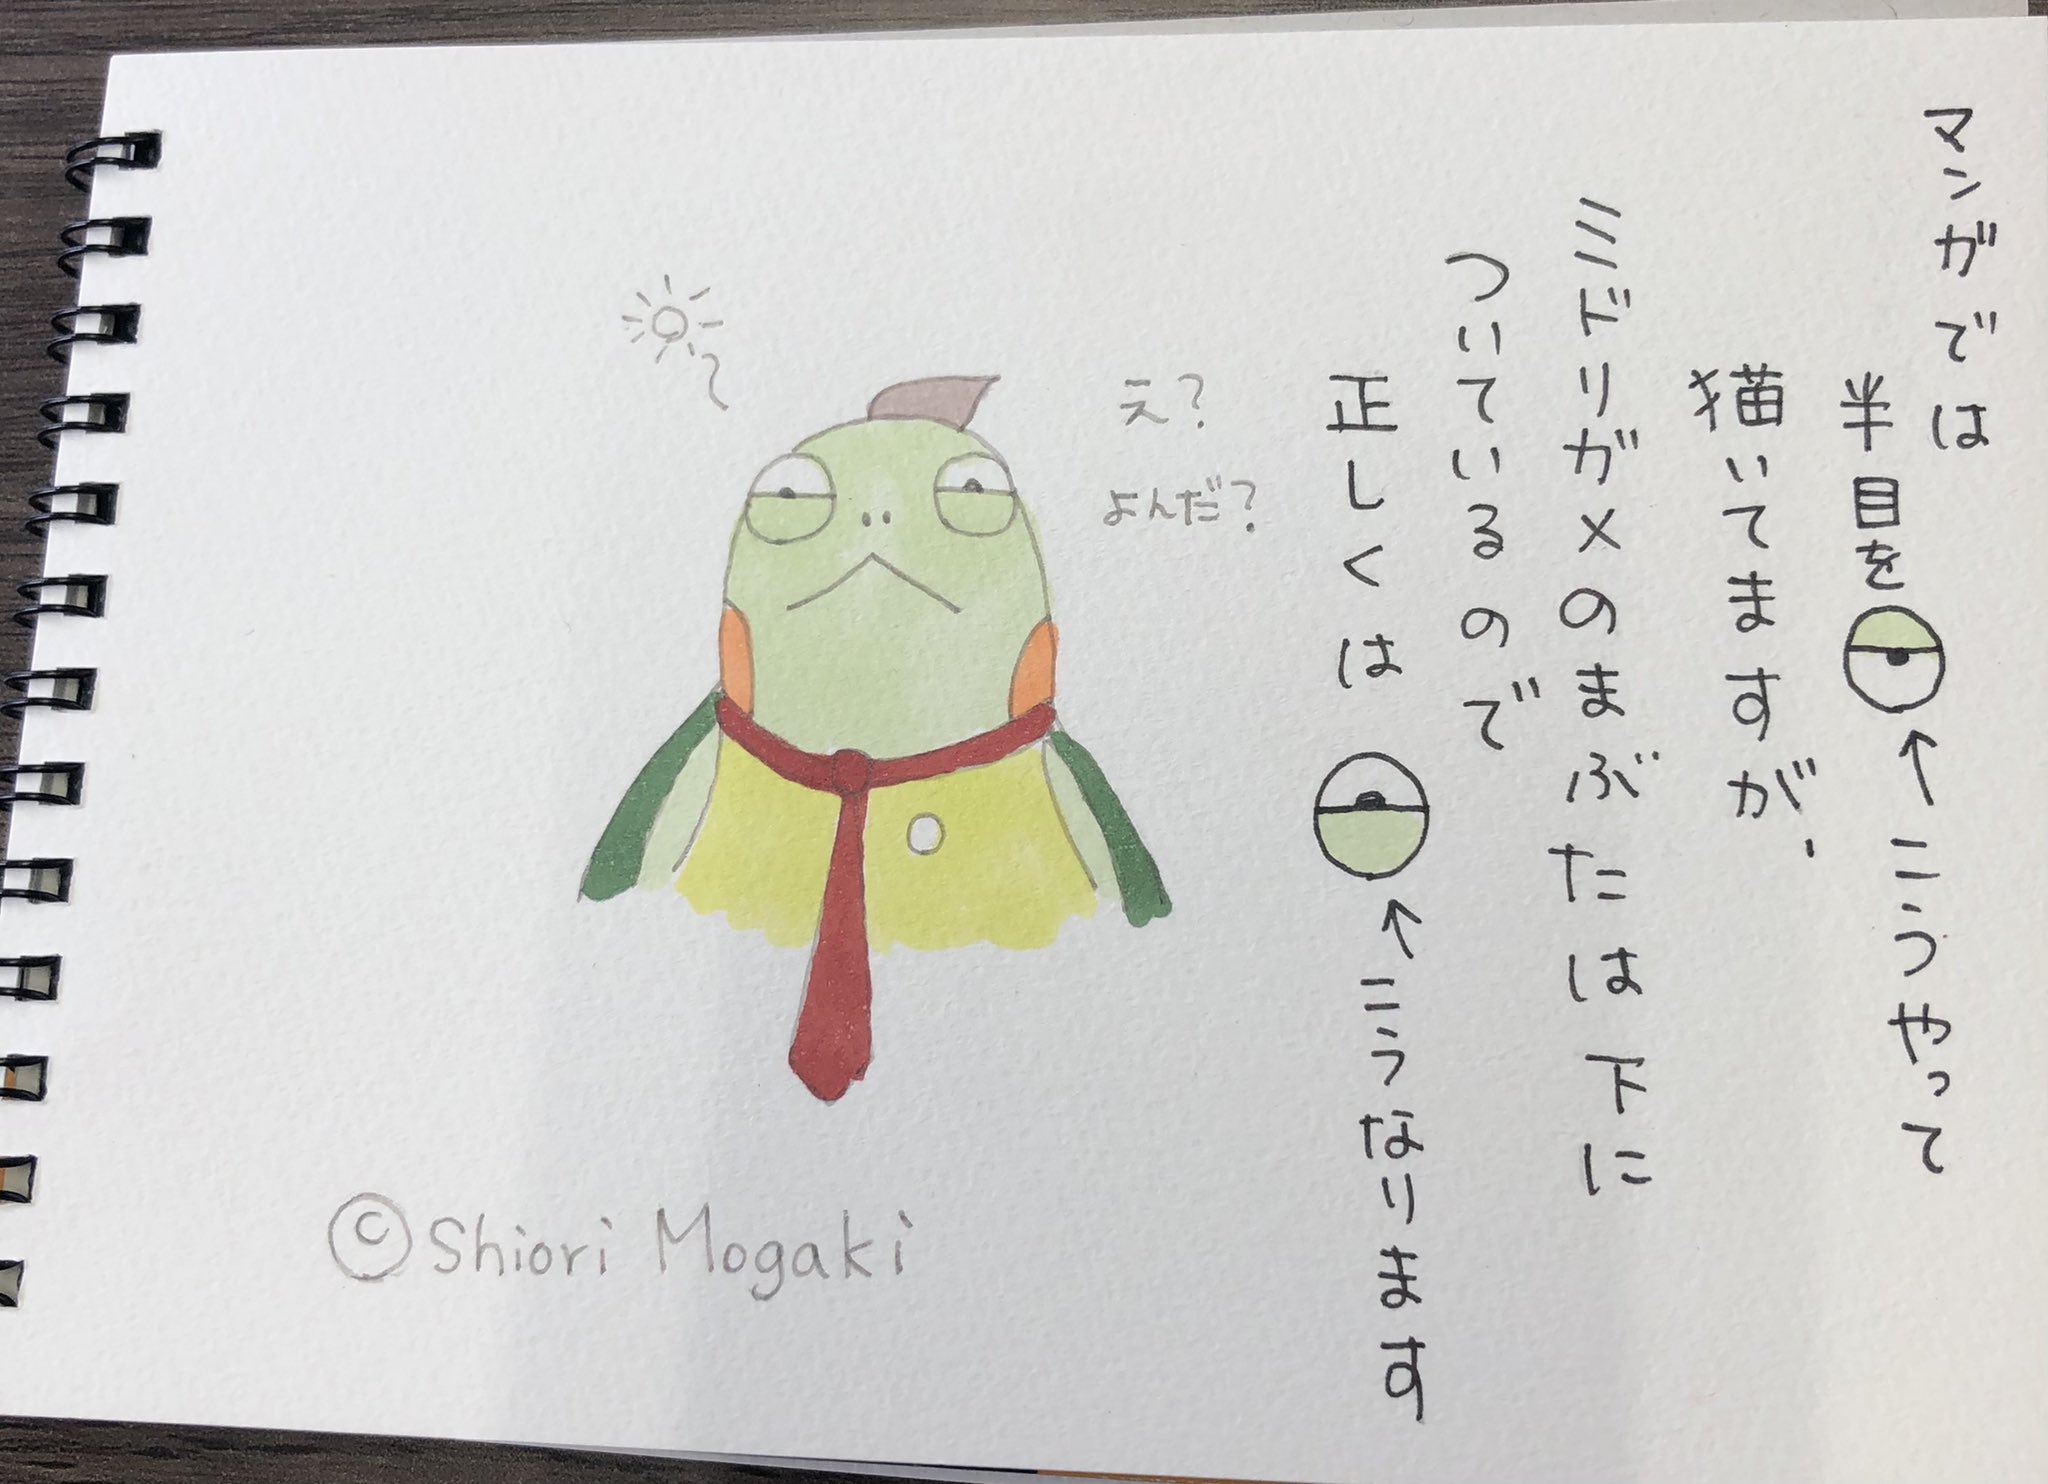 マンガでは
半目を↑こうやって
描いてますが、
ミドリガメのまぶたは下に
ついているので
正しくは↑こうなります
え?
よんだ?
©Shiori Mogaki